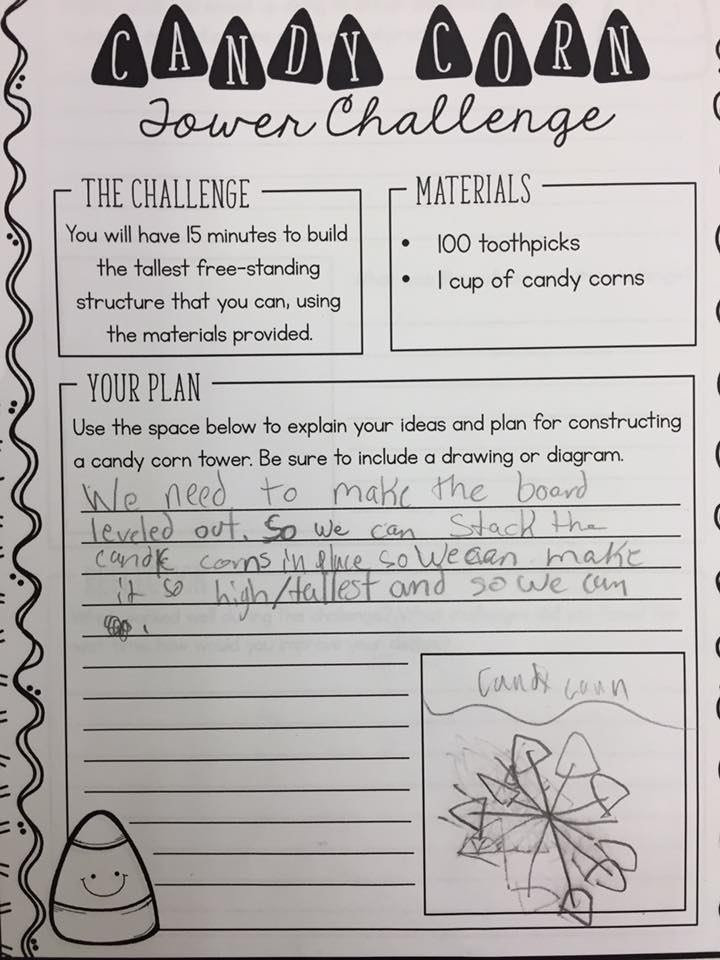 CANDY CORN
Tower Challenge
THE CHALLENGE
You will have 15 minutes to build
the tallest free-standing
structure that you can, using
the materials provided.
MATERIALS
• 100 toothpicks
• 1 cup of candy corns
YOUR PLAN
Use the space below to explain your ideas and plan for constructing
a candy corn tower. Be sure to include a drawing or diagram.
We need to make the board
leveled out. So we can Stack the
candk corns in place so We can make
it so high/tallest and so we can